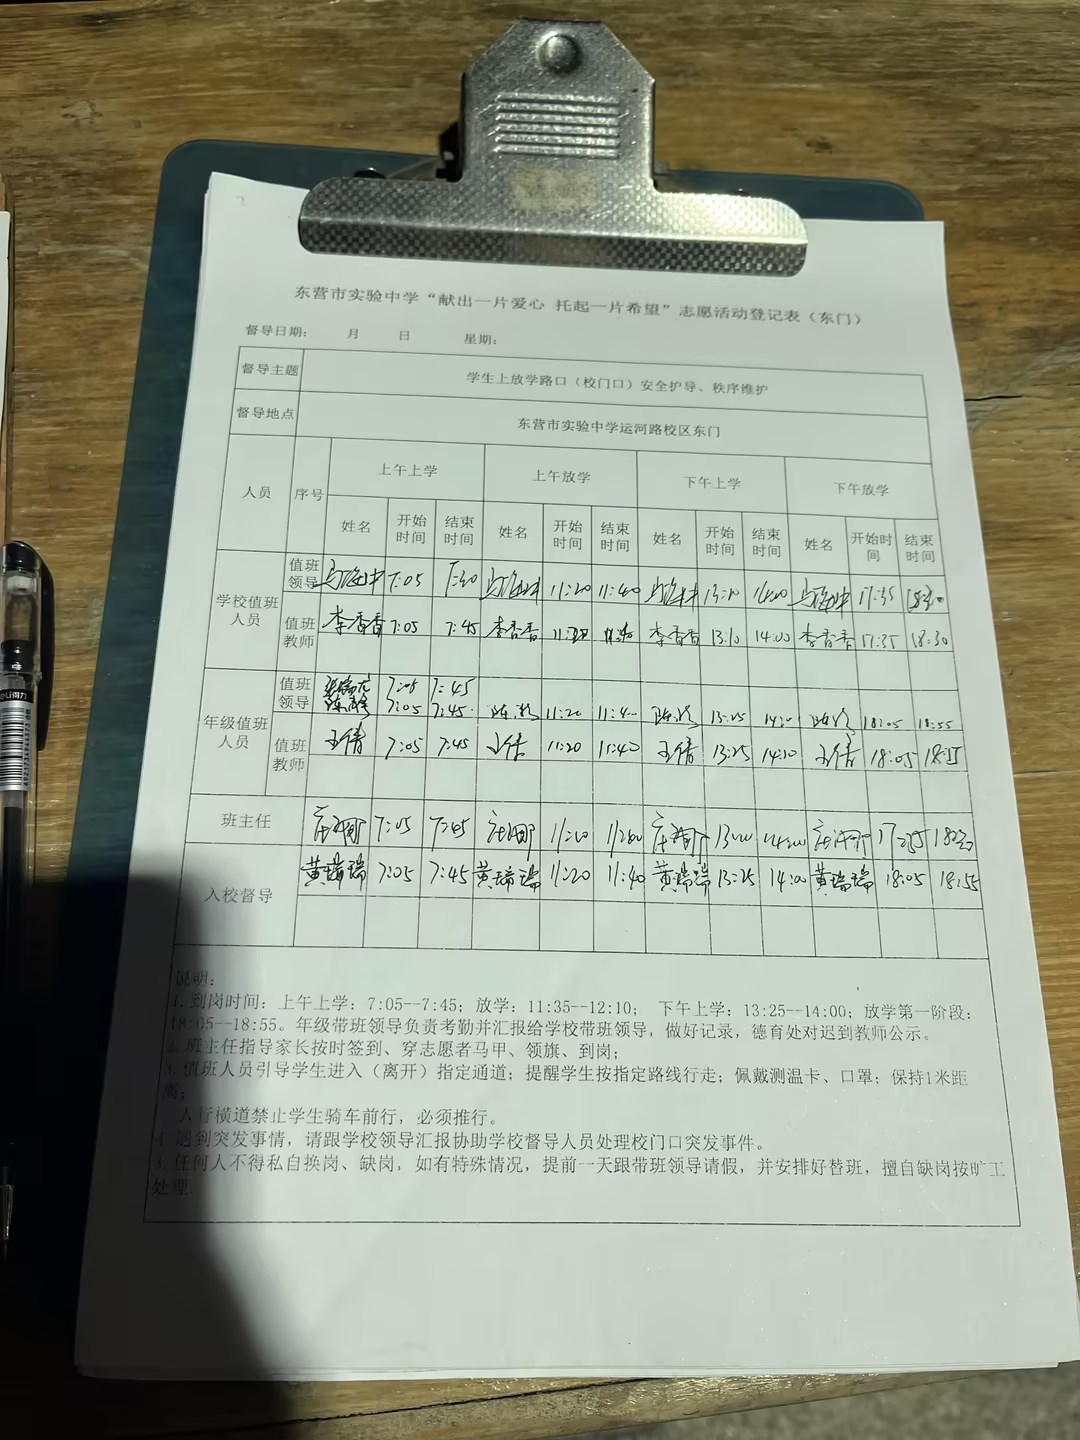 东营市实验中学“献出一片爱心 托起一片希望”志愿活动登记表（东门）
督导日期： 月 日 星期：
督导主题 学生上放学路口（校门口）安全护导、秩序维护
督导地点 东营市实验中学运河路校区东门
人员 序号 上午上学 上午放学 下午上学 下午放学
姓名 开始时间 结束时间 姓名 开始时间 结束时间 姓名 开始时间 结束时间 姓名 开始时间 结束时间
学校值班人员 值班领导 7:05 11:20 11:40 17:35
值班教师 李香香 7:05 7:45 李香香 李香香 13:10 14:00 李香香 17:35 18:30
年级值班人员 值班领导 7:05 7:45
7:05 7:45 11:20 13:25 18:05 18:55
值班教师 王倩 7:05 7:45 王倩 11:20 11:40 王倩 13:25 王倩 18:05
班主任 7:05
入校督导 黄瑞瑞 7:05 7:45 黄瑞瑞 11:20 11:40 黄瑞瑞 13:25 14:00 黄瑞瑞 18:05 18:55
说明：
1.到岗时间：上午上学：7:05--7:45；放学：11:35--12:10； 下午上学：13:25--14:00；放学第一阶段：
18:05--18:55。年级带班领导负责考勤并汇报给学校带班领导，做好记录，德育处对迟到教师公示。
班主任指导家长按时签到、穿志愿者马甲、领旗、到岗；
3.值班人员引导学生进入（离开）指定通道；提醒学生按指定路线行走；佩戴测温卡、口罩；保持1米距
离；
人行横道禁止学生骑车前行，必须推行。
4.遇到突发事情，请跟学校领导汇报协助学校督导人员处理校门口突发事件。
任何人不得私自换岗、缺岗，如有特殊情况，提前一天跟带班领导请假，并安排好替班，擅自缺岗按旷工
处理.